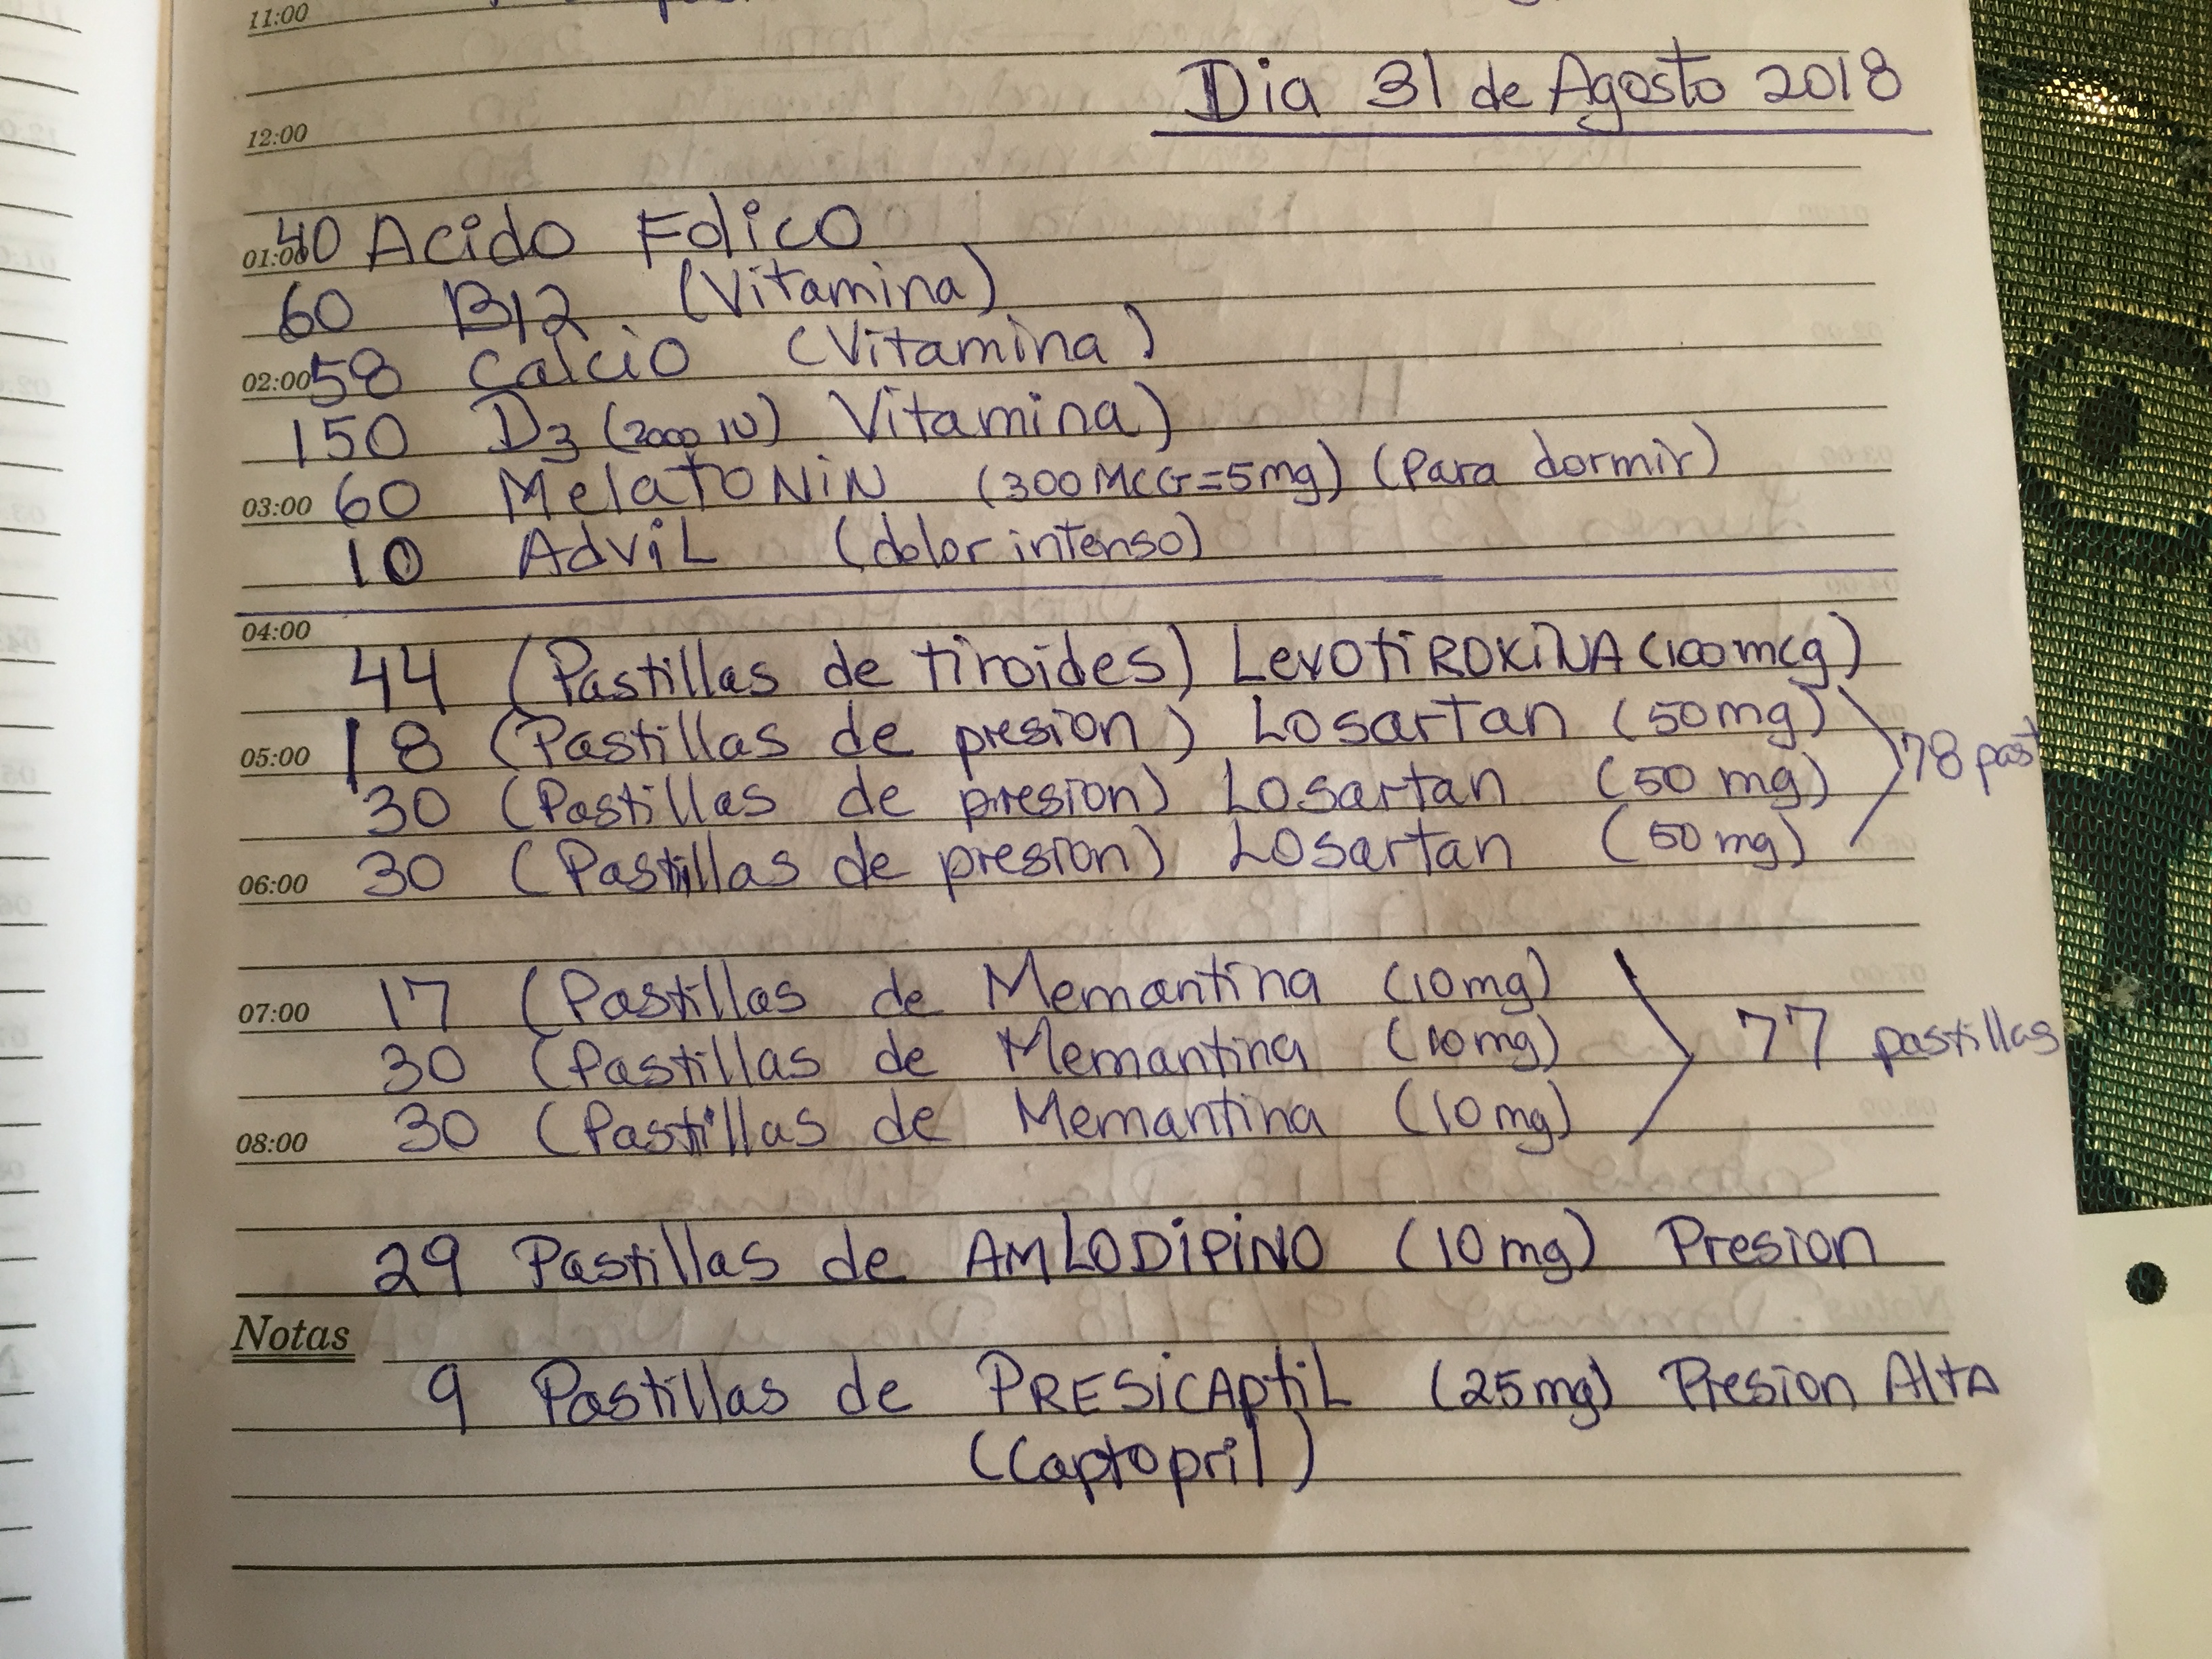 11:00
Dia 31 de Agosto 2018
12:00
01:00 40 Acido Folico
60 B12 (Vitamina)
02:00 58 Calcio (Vitamina)
150 D3 (2000 IU) Vitamina)
03:00 60 MelaTONiN (300MCG=5mg) (Para dormir)
10 AdviL (dolor intenso)
04:00
44 (Pastillas de tiroides) LevotiROXiNA (100mcg)
05:00 18 (Pastillas de presion) Losartan (50mg)
78 past
30 (Pastillas de presion) Losartan (50 mg)
06:00 30 (Pastillas de presion) Losartan (50mg)
07:00 17 (Pastillas de Memantina (10mg)
30 (Pastillas de Memantina (10mg) 77 pastillas
08:00 30 (Pastillas de Memantina (10mg)
29 Pastillas de AMLODiPiNO (10mg) Presion
Notas
9 Pastillas de PRESiCAptiL (25mg) Presion Alta
(Captopril)